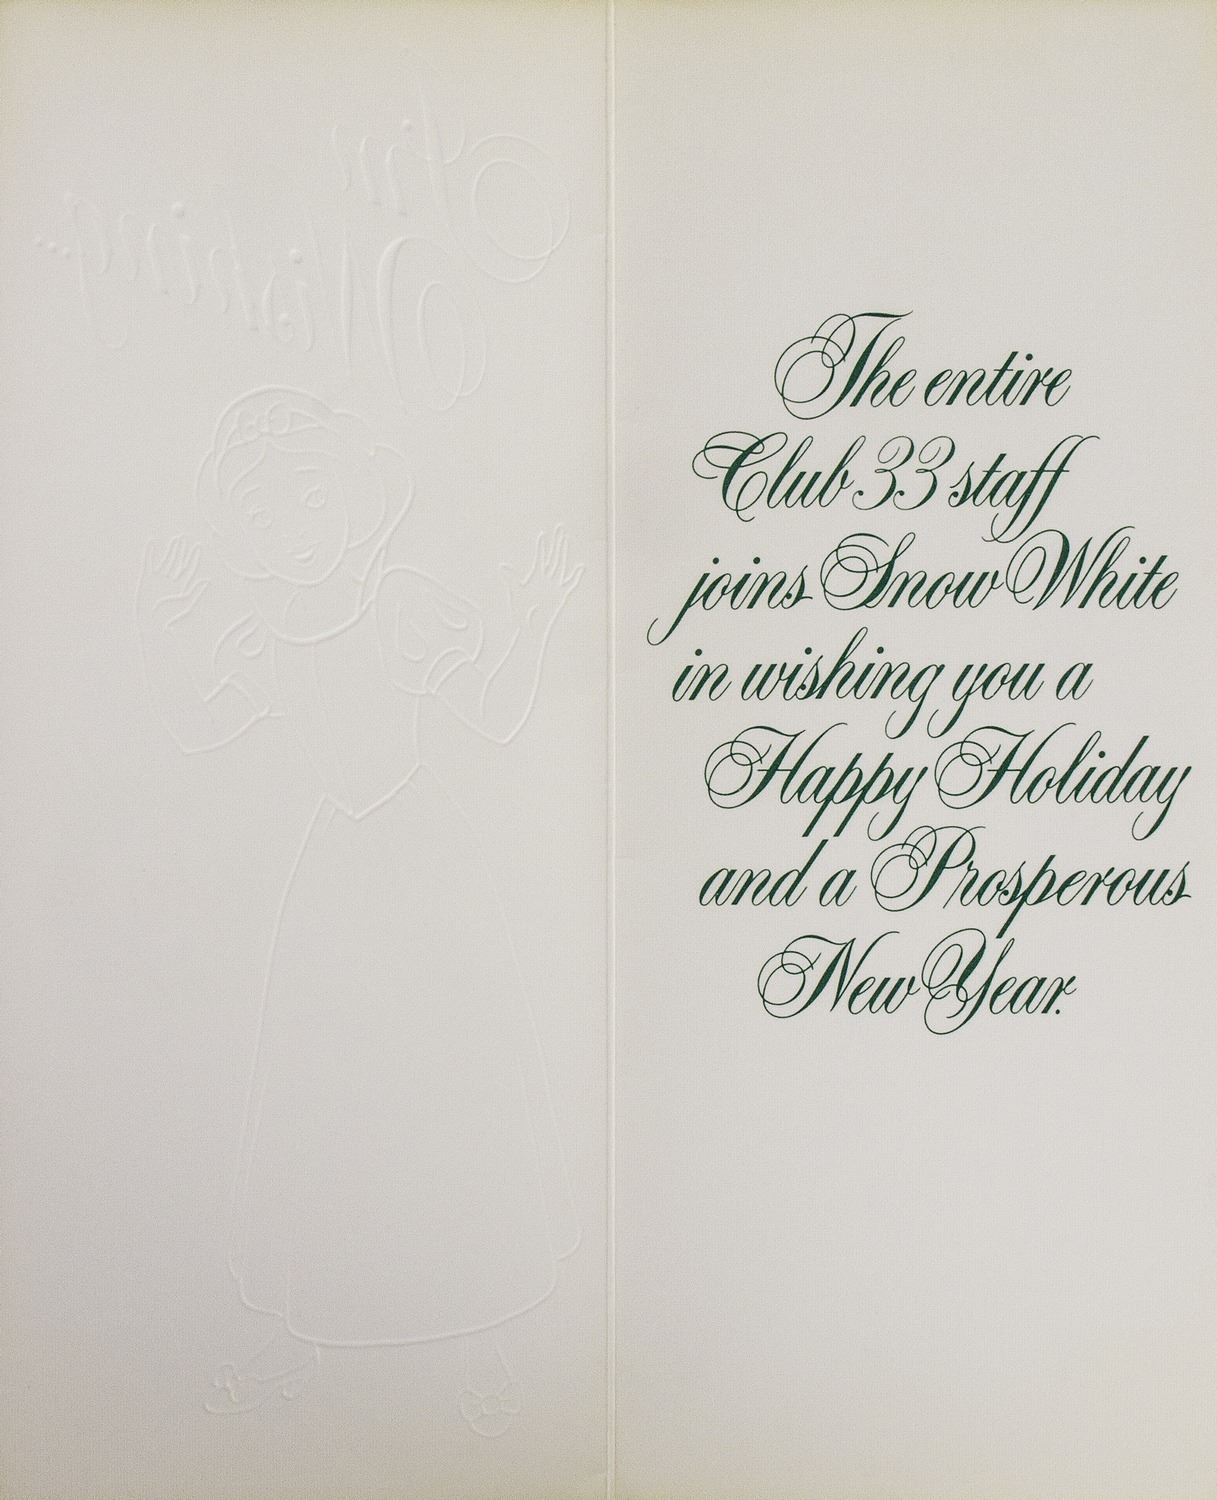 I'm
Wishing...
The entire
Club 33 staff
joins Snow White
in wishing you a
Happy Holiday
and a Prosperous
New Year.